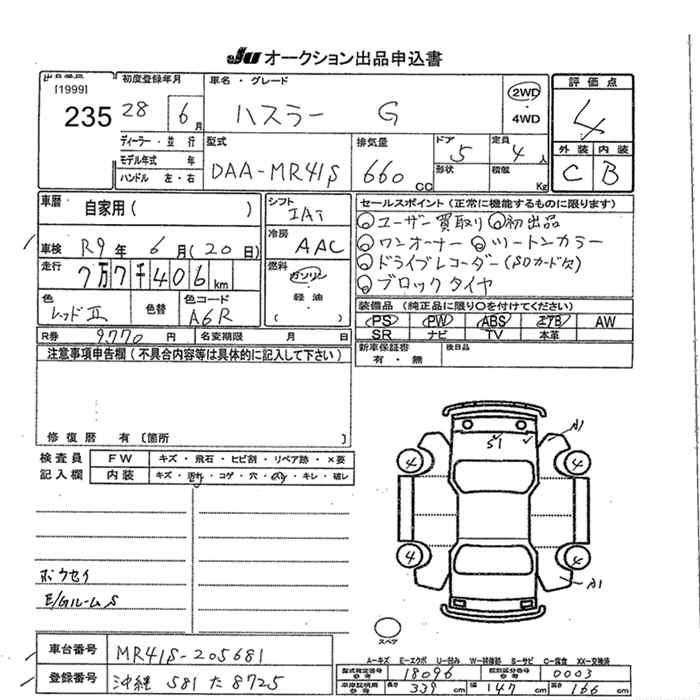 JU オークション出品申込書
[1999]
235
初度登録年月
28 6月
車名・グレード
ハスラー G
2WD
4WD
評価点
4
外装 内装
C B
ディーラー・並行
モデル年式 年
ハンドル 左・右
型式
DAA-MR41S
排気量
660 cc
ドア
5
形状
定員
4人
積載
Kg
車歴
自家用( )
車検 R9年6月(20日)
走行
7万7千406km
色
レッドⅡ
色替
色コード
A6R
シフト
IAT
冷房
AAC
燃料
ガソリン
軽油
( )
セールスポイント(正常に機能するものに限ります)
ユーザー買取り 初出品
ワンオーナー ツートンカラー
ドライブレコーダー(SDカード欠)
ブロックタイヤ
装備品(純正品に限り○を付けてください)
PS PW ABS エアB AW
SR ナビ TV 本革
新車保証書
有・無
後日品
R券 9,770円
名変期限 月 日
注意事項申告欄(不具合内容等は具体的に記入して下さい)
修復歴 有〔箇所 〕
検査員
記入欄
FW キズ・飛石・ヒビ割・リペア跡・×要
内装 キズ・汚れ・コゲ・穴・・キレ・破レ
ボウセイ
E/Gルーム S
S1
A1
4 4
4 4
A1
スペア
車台番号 MR41S-205681
登録番号 沖縄 581 た 8725
A-キズ E-エクボ U-凹み W-補修跡 S-サビ C-腐食 XX-交換済
型式指定番号 18096
類別区分番号 0003
車庫証明用参考 長さ 339cm 幅 147cm 高さ 166cm